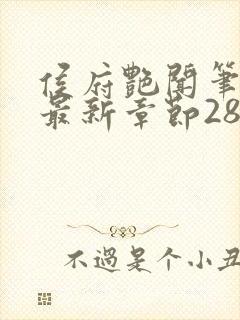 侯府艷聞筆
最新章節28
不過是个小丑